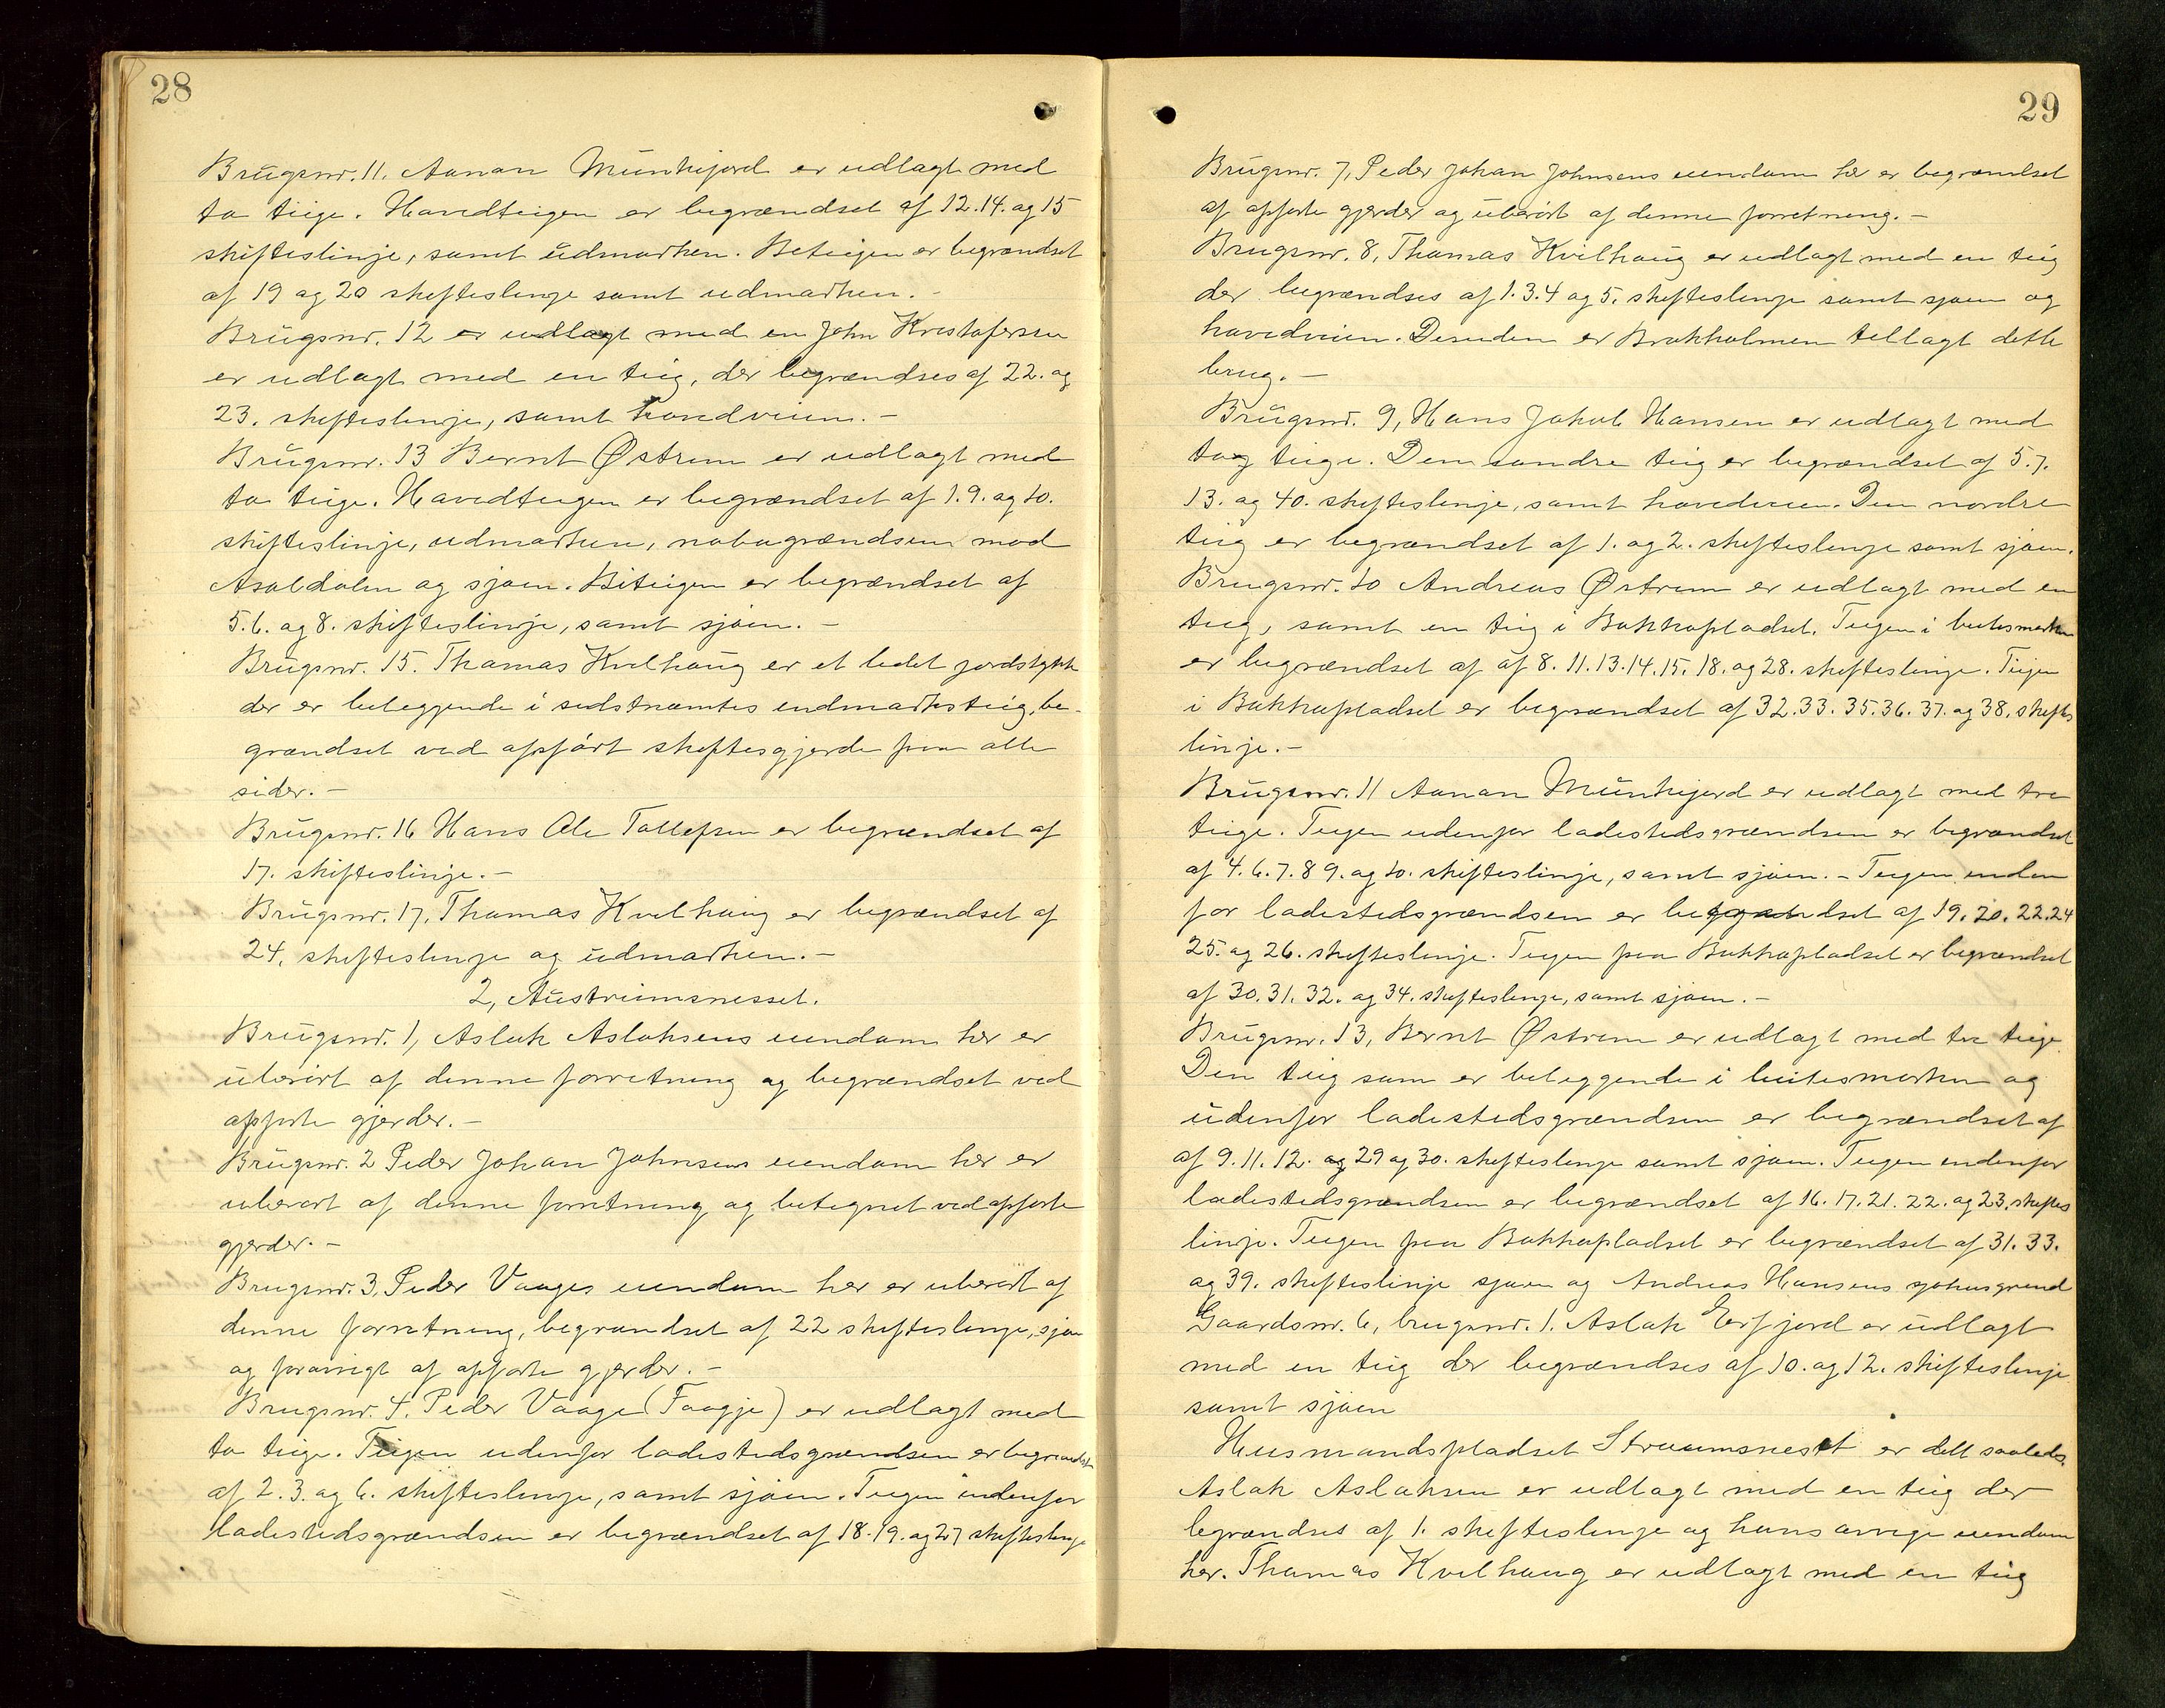 28
Brugsnr. 11. Aanan Munkejord er udlagt med
to teige. Hovedteigen er begrændset af 12.14. og 15
skifteslinje, samt udmarken. Beteigen er begrændset
af 19 og 20 skifteslinje samt udmarken. -
Brugsnr. 12 er udlagt med en John Kristofersen
er udlagt med en teig, der begrændses af 22. og
23. skifteslinje, samt hovedveien. -
Brugsnr. 13 Bernt Østrem er udlagt med
to teige. Hovedteigen er begrændset af 1.9. og 10.
skifteslinje, udmarken, nabogrændsen mod
Asaldalen og sjøen. Biteigen er begrændset af
5.6. og 8. skifteslinje, samt sjøen. -
Brugsnr. 15. Thomas Kvilhaug er et lidet jordstykke
der er beleggende i sidstnæmtes indmarksteig, be-
grændset ved opført skiftesgjerde fra alle
sider. -
Brugsnr. 16 Hans Ole Tollefsen er begrændset af
17. skifteslinje. -
Brugsnr. 17, Thomas Kvilhaug er begrændset af
24. skifteslinje og udmarken. -
2, Austrumsnesset.
Brugsnr. 1, Aslak Aslaksens eiendom her er
uberørt af denne forretning og begrændset ved
opførte gjerder. -
Brugsnr. 2 Peder Johan Johnsens eiendom her er
uberørt af denne forretning og betegnet ved opførte
gjerder. -
Brugsnr. 3, Peder Vaages eiendom her er uberørt af
denne forretning, begrændset af 22 skifteslinje, sjøen
og forøvrigt af opførte gjerder. -
Brugsnr. 4. Peder Vaage (Faagje) er udlagt med
to teige. Teigen udenfor ladestedsgrændsen er begrændset
af 2.3. og 6. skifteslinje, samt sjøen. Teigen indenfor
ladestedsgrændsen er begrændset af 18.19. og 27 skifteslinje
29
Brugsnr. 7, Peder Johan Johnsens eiendom her er begrændset
af opførte gjerder og uberørt af denne forretning. -
Brugsnr. 8, Thomas Kvilhaug er udlagt med en teig
der begrændses af 1.3.4 og 5. skifteslinje samt sjøen og
hovedveien. Desuden er Brakholmen tillagt dette
brug. -
Brugsnr. 9, Hans Jakob Hansen er udlagt med
to teige. Den søndre teig er begrændset af 5.7.
13. og 40. skifteslinje, samt hovedveien. Den nordre
teig er begrændset af 1. og 2. skifteslinje samt sjøen.
Brugsnr. 10 Andreas Østrem er udlagt med en
teig, samt en teig i Bakkapladset. Teigen i beitesmarken
er begrændset af af 8. 11.13.14.15.18. og 28. skifteslinje. Teigen
i Bakkapladset er begrændset af 32.33.35.36.37. og 38. skiftes
linje. -
Brugsnr. 11 Aanan Munkejord er udlagt med tre
teige. Teigen udenfor ladestedsgrændsen er begrændset
af 4.6.7.8 9. og 10. skifteslinje, samt sjøen. - Teigen inden
for ladestedsgrændsen er begrændset af 19.20.22.24
25. og 26. skifteslinje. Teigen paa Bakkapladset er begrændset
af 30.31.32. og 34. skifteslinje, samt sjøen. -
Brugsnr. 13, Bernt Østrem er udlagt med tre teige
Den teig som er beleggende i beitesmarken og
udenfor ladestedsgrændsen er begrændset af
af 9.11.12. og 29 og 30. skifteslinje samt sjøen. Teigen indenfor
ladestedsgrændsen er begrændset af 16.17.21.22. og 23. skiftes
linje. Teigen paa Bakkapladset er begrændset af 31.33.
og 39. skifteslinje sjøen og Andreas Hansens sjøhusgrund
Gaardsnr. 6, brugsnr. 1. Aslak Erfjord er udlagt
med en teig der begrændses af 10. og 12. skifteslinje
samt sjøen
Husmandspladset Straumsneset er delt saaledes.
Aslak Aslaksen er udlagt med en teig der
begrændses af 1. skifteslinje og hans øvrige eiendom
her. Thomas Kvilhaug er udlagt med en teig